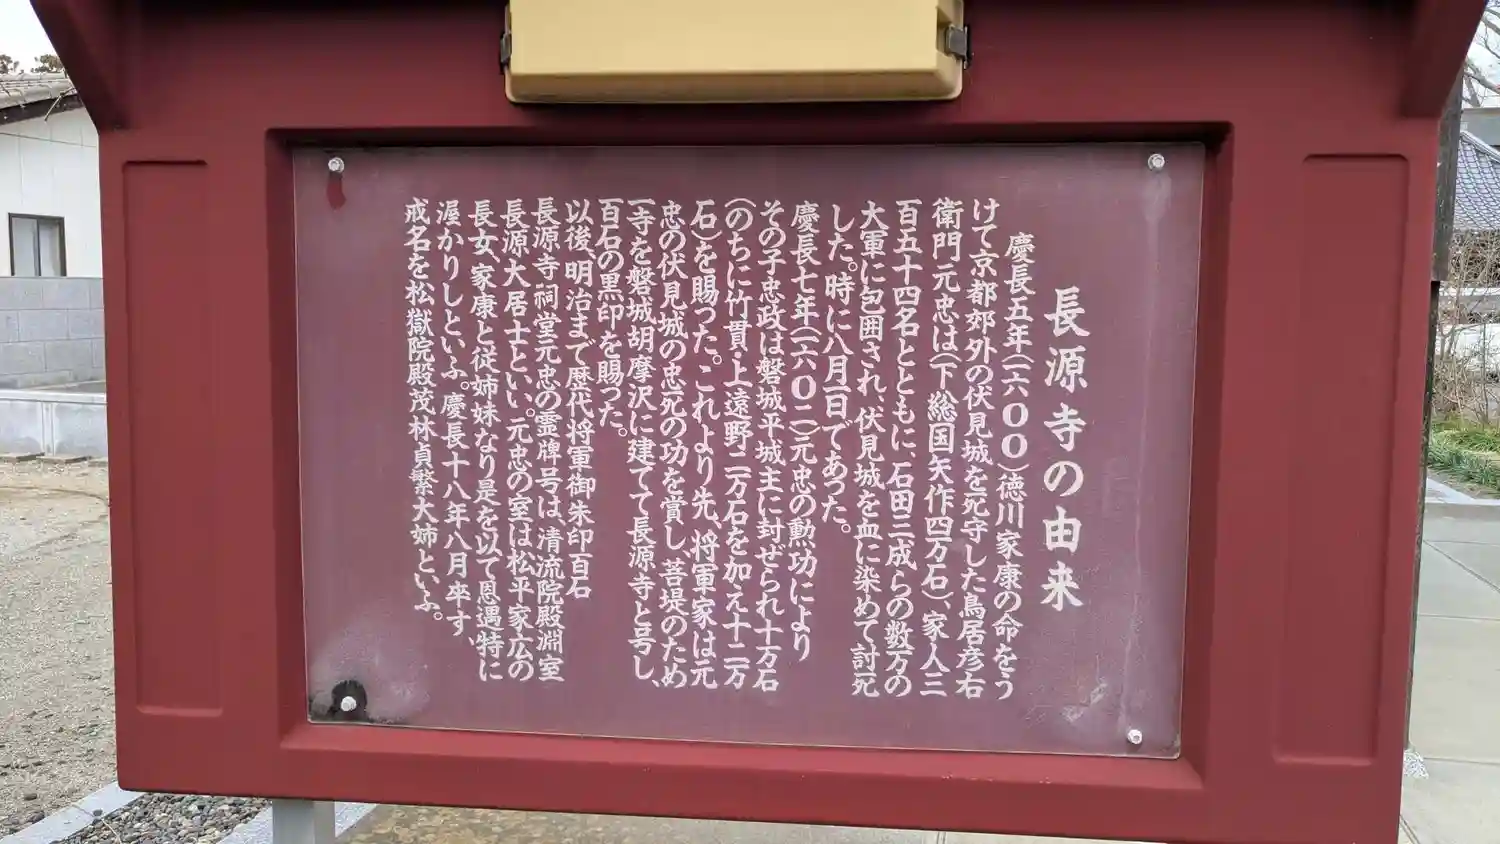 長源寺の由来
慶長五年(一六〇〇)徳川家康の命をう
けて京都郊外の伏見城を死守した鳥居彦右
衛門元忠は(下総国矢作四万石)、家人三
百五十四名とともに、石田三成らの数万の
大軍に包囲され、伏見城を血に染めて討死
した。時に八月一日であった。
慶長七年(一六〇二)元忠の勲功により
その子忠政は磐城平城主に封ぜられ十万石
(のちに竹貫・上遠野二万石を加え十二万
石)を賜った。これより先、将軍家は元
忠の伏見城の忠死の功を賞し、菩提のため
一寺を磐城胡摩沢に建てて長源寺と号し、
百石の黒印を賜った。
以後、明治まで歴代将軍御朱印百石
長源寺祠堂元忠の霊牌号は、清流院殿淵室
長源大居士といい。元忠の室は松平家広の
長女、家康と従姉妹なり是を以て恩遇特に
渥かりしといふ。慶長十八年八月卒す、
戒名を松獄院殿茂林貞繁大姉といふ。